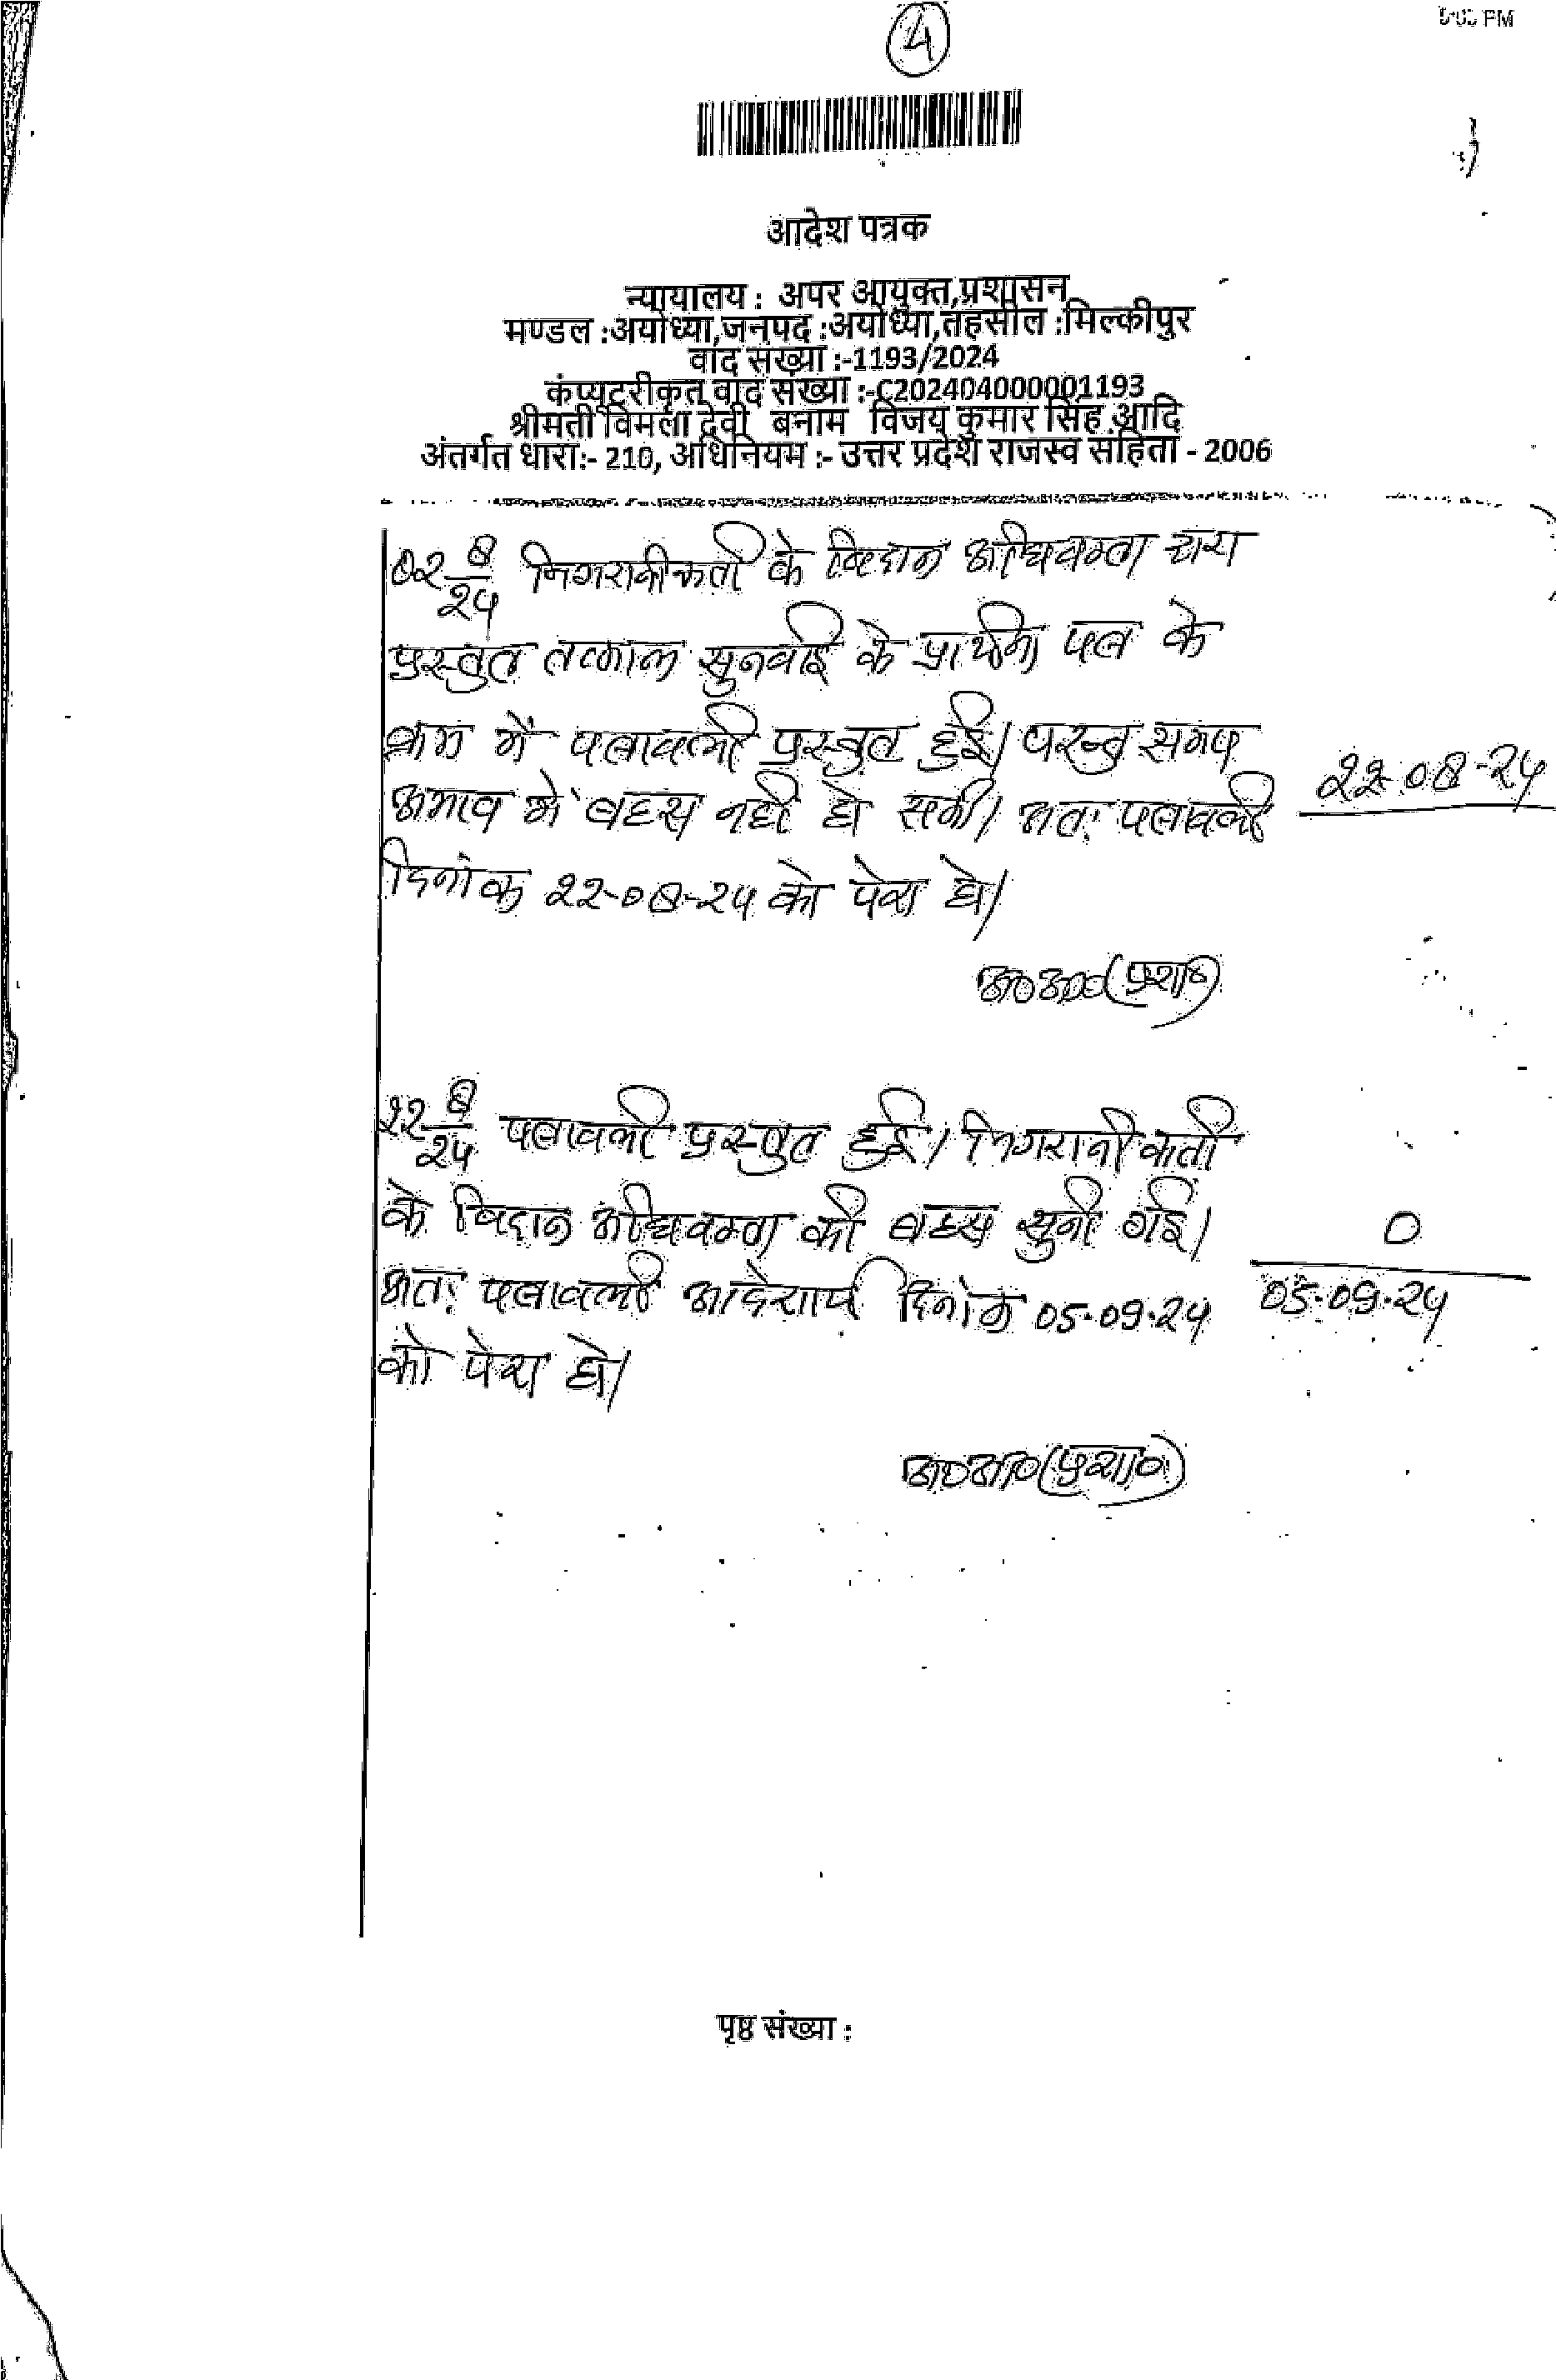 4
आदेश पत्रक
न्यायालय : अपर आयुक्त,प्रशासन
मण्डल :अयोध्या,जनपद :अयोध्या,तहसील :मिल्कीपुर
वाद संख्या :-1193/2024
कंप्यूटरीकृत वाद संख्या :-C202404000001193
श्रीमती विमला देवी बनाम विजय कुमार सिंह आदि
अंतर्गत धारा:- 210, अधिनियम :- उत्तर प्रदेश राजस्व संहिता - 2006
02 8/24 निगरानीकर्ता के विद्वान अधिवक्ता द्वारा
प्रस्तुत तत्काल सुनवाई के प्रार्थना पत्र के
क्रम में पत्रावली प्रस्तुत हुई। परन्तु समय
अभाव में बहस नहीं हो सकी। अतः पत्रावली
22-08-24
दिनांक 22-08-24 को पेश हो।
अ0आ0(प्रशा0)
22 8/24 पत्रावली प्रस्तुत हुई। निगरानीकर्ता
के विद्वान अधिवक्ता की बहस सुनी गई।
0
अतः पत्रावली आदेशार्थ दिनांक 05.09.24
05.09.24
को पेश हो।
अ0आ0(प्रशा0)
पृष्ठ संख्या :